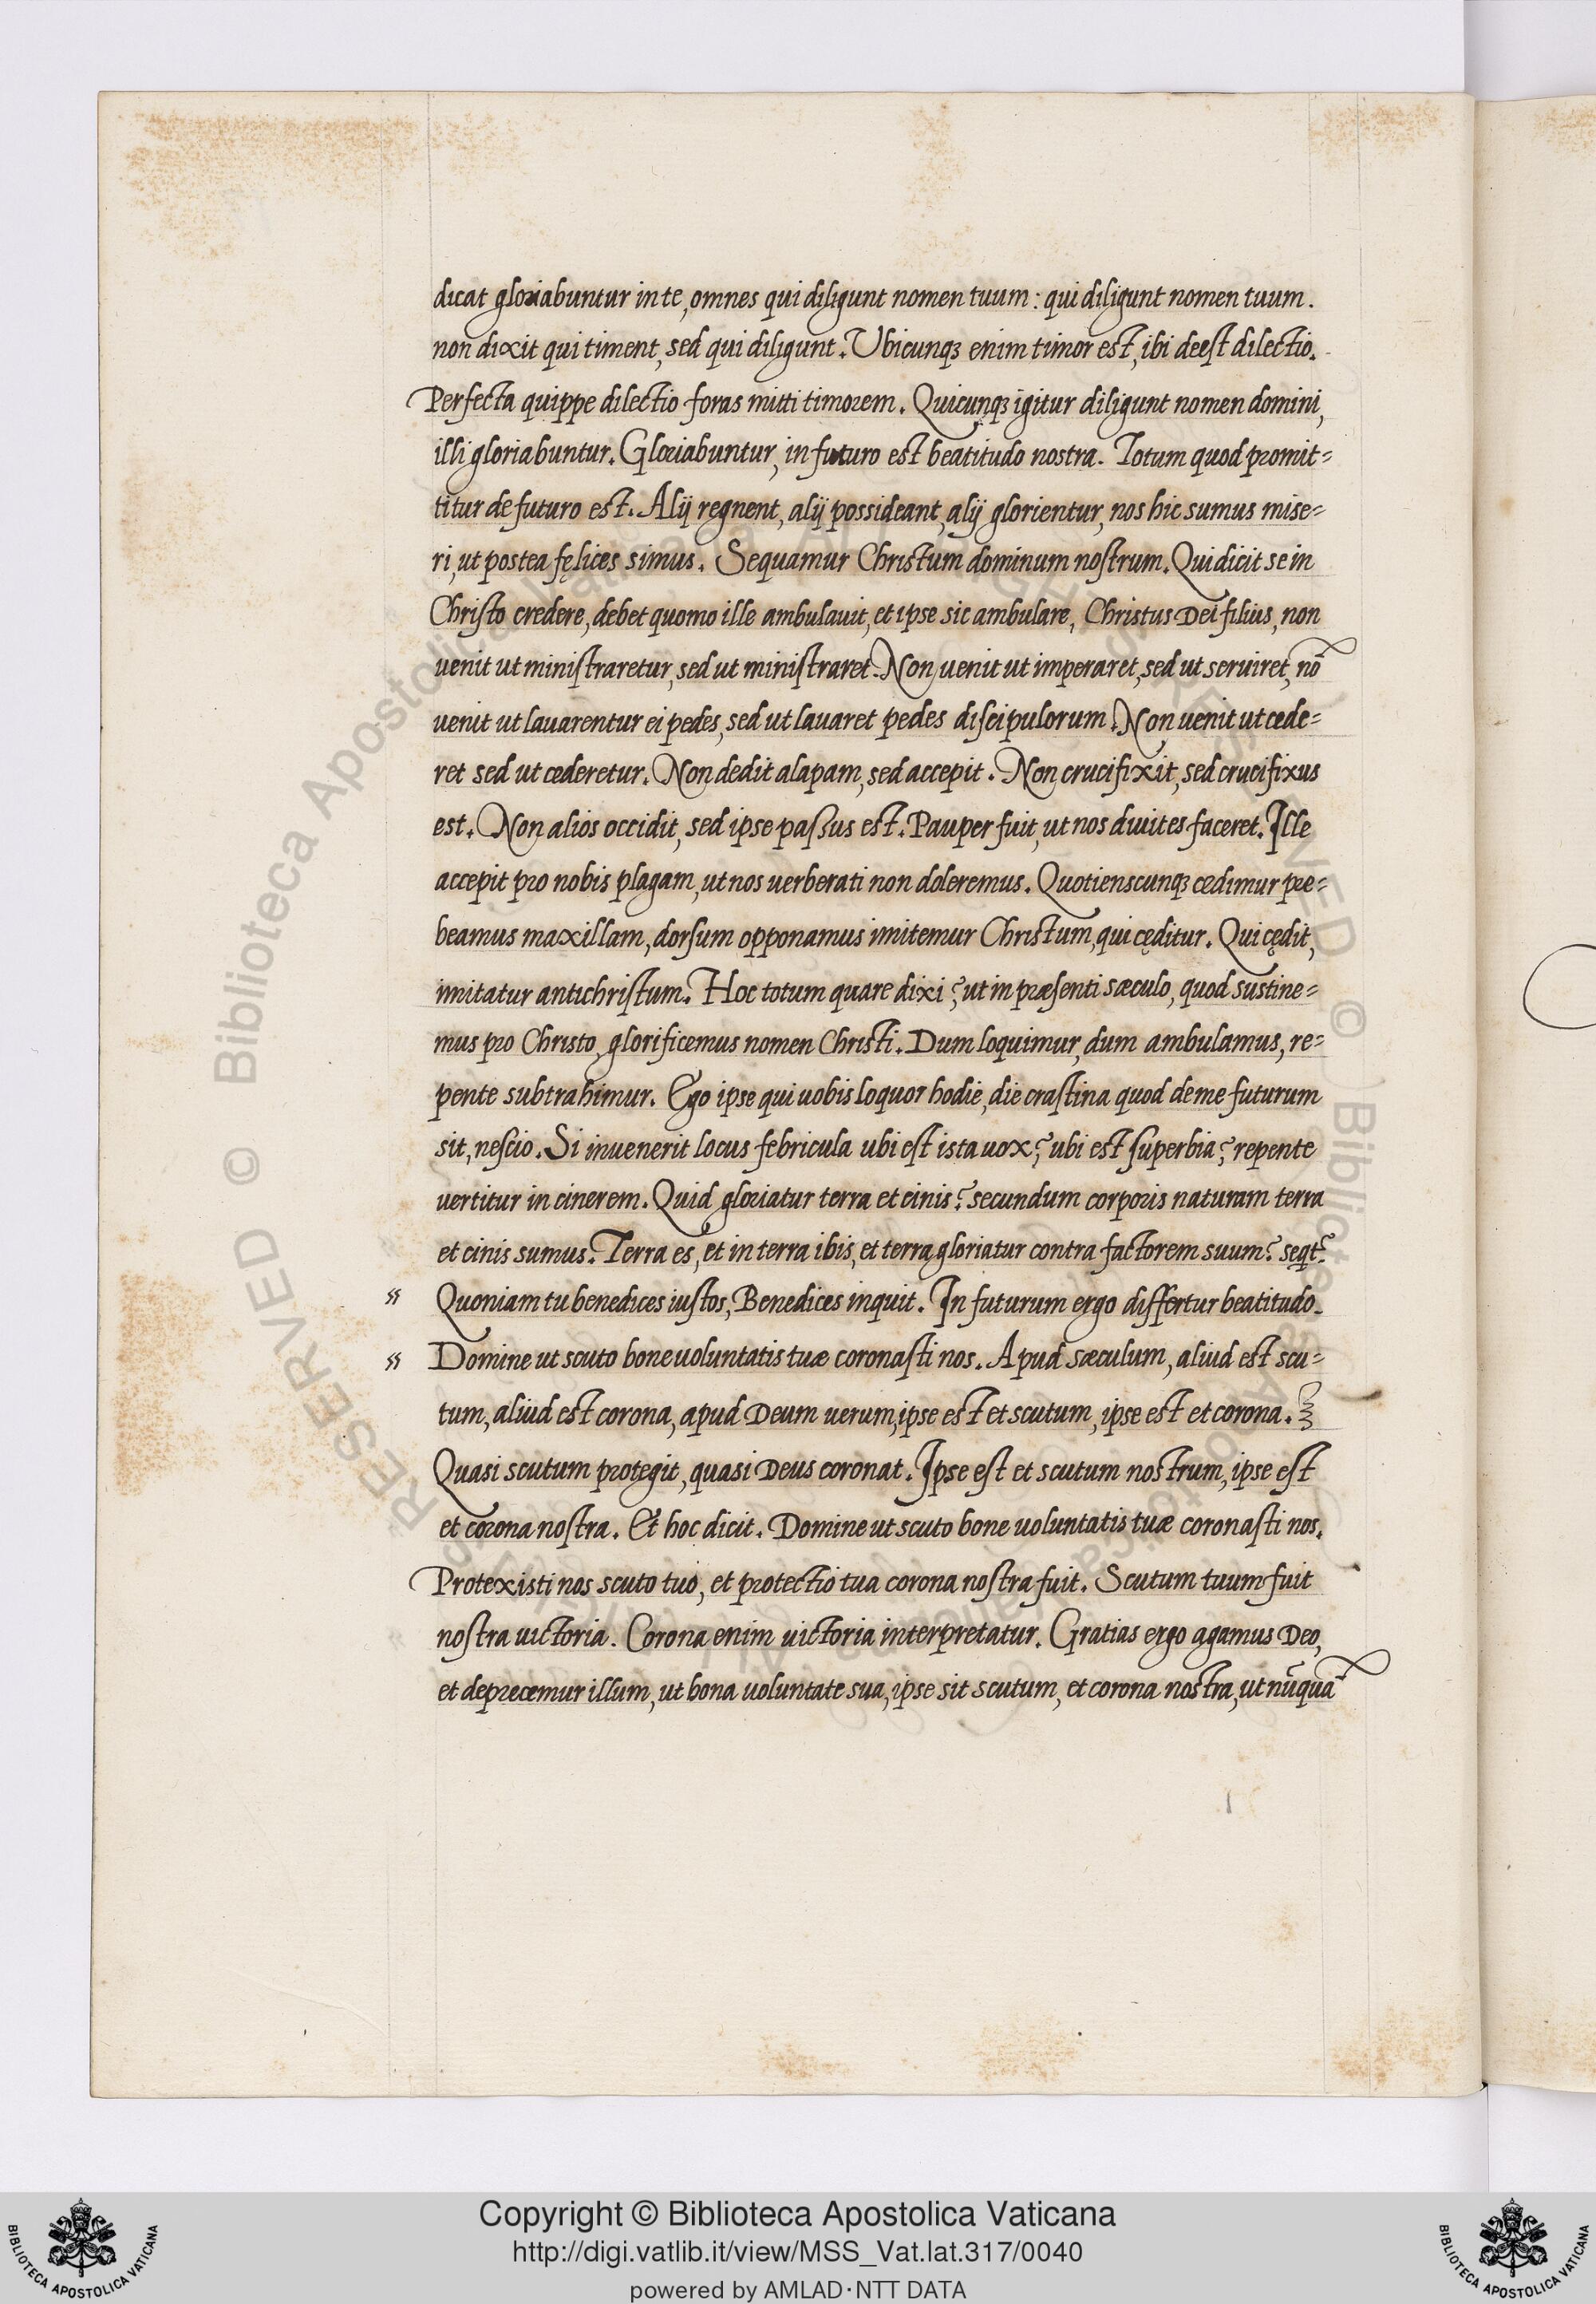 dicat gloriabuntur in te, omnes qui diligunt nomen tuum : qui diligunt nomen tuum.
non dixit qui timent, sed qui diligunt. Ubicunqꝫ enim timor est, ibi deest dilectio.
Perfecta quippe dilectio foras mitti timorem. Quicunqꝫ igitur diligunt nomen domini,
illi gloriabuntur. Gloriabuntur, in futuro est beatitudo nostra. Totum quod promit=
titur de futuro est. Alij regnent, alij possideant, alij glorientur, nos hic sumus mise=
ri, ut postea fęlices simus. Sequamur Christum dominum nostrum. Qui dicit se in
Christo credere, debet quomo ille ambulauit, et ipse sic ambulare, Christus Dei filius, non
uenit ut ministraretur, sed ut ministraret. Non uenit ut imperaret, sed ut seruiret, nō
uenit ut lauarentur ei pedes, sed ut lauaret pedes discipulorum. Non uenit ut cede=
ret sed ut cederetur. Non dedit alapam, sed accepit. Non crucifixit, sed crucifixus
est. Non alios occidit, sed ipse passus est. Pauper fuit, ut nos diuites faceret. Ille
accepit pro nobis plagam, ut nos uerberati non doleremus. Quotienscunqꝫ cedimur pre=
beamus maxillam, dorsum opponamus imitemur Christum, qui cęditur. Qui cędit,
imitatur antichristum. Hoc totum quare dixi? ut in præsenti sæculo, quod sustine=
mus pro Christo, glorificemus nomen Christi. Dum loquimur, dum ambulamus, re=
pente subtrahimur. Ego ipse qui uobis loquor hodie, die crastina quod de me futurum
sit, nescio. Si inuenerit locus febricula ubi est ista uox? ubi est superbia? repente
vertitur in cinerem. Quid gloriatur terra et cinis? secundum corporis naturam terra
et cinis sumus. Terra es, et in terra ibis, et terra gloriatur contra factorem suum? seqt̄.
" Quoniam tu benedices iustos, Benedices inquit. In futurum ergo differtur beatitudo.
" Domine ut scuto bone uoluntatis tuæ coronasti nos. Apud sæculum, aliud est scu=
tum, aliud est corona, apud Deum uerum, ipse est et scutum, ipse est et corona.
Quasi scutum protegit, quasi Deus coronat. Ipse est et scutum nostrum, ipse est
et corona nostra. Et hoc dicit. Domine ut scuto bone uoluntatis tuæ coronasti nos.
Protexisti nos scuto tuo, et protectio tua corona nostra fuit. Scutum tuum fuit
nostra uictoria. Corona enim uictoria interpretatur. Gratias ergo agamus Deo,
et deprecemur illum, ut bona uoluntate sua, ipse sit scutum, et corona nostra, ut nūquā
© Biblioteca Apostolica Vaticana
Copyright © Biblioteca Apostolica Vaticana
http://digi.vatlib.it/view/MSS_Vat.lat.317/0040
powered by AMLAD·NTT DATA
BIBLIOTECA APOSTOLICA VATICANA
BIBLIOTECA APOSTOLICA VATICANA